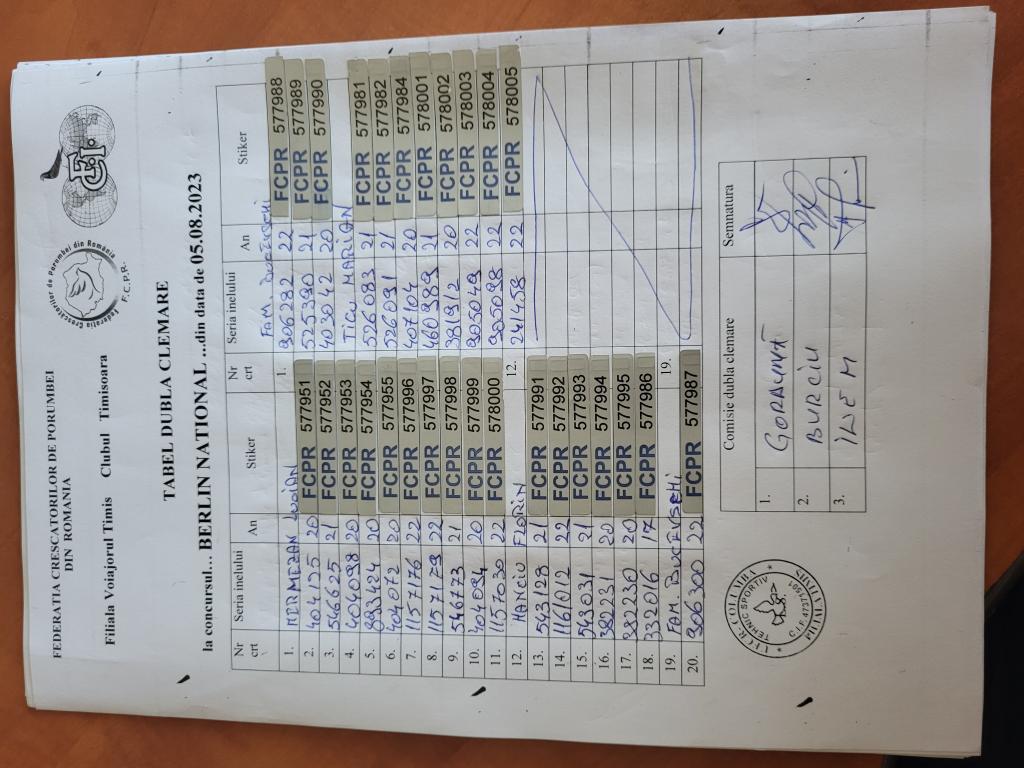 FEDERATIA CRESCATORILOR DE PORUMBEI
DIN ROMANIA
Filiala Voiajorul Timis Clubul Timisoara
Federatia Crescatorilor de Porumbei din România
F.C.P.R.
TABEL DUBLA CLEMARE
la concursul... BERLIN NATIONAL ...din data de 05.08.2023
Nr crt Seria inelului An Stiker
1. MIRAMEZAN LUCIAN
2. 404195 20 FCPR 577951
3. 566625 21 FCPR 577952
4. 404098 20 FCPR 577953
5. 893424 20 FCPR 577954
6. 404072 20 FCPR 577955
7. 115776 22 FCPR 577996
8. 115779 22 FCPR 577997
9. 546773 21 FCPR 577998
10. 404094 20 FCPR 577999
11. 1157030 22 FCPR 578000
12. HANCIU FLORIN
13. 543128 21 FCPR 577991
14. 1161012 22 FCPR 577992
15. 543031 21 FCPR 577993
16. 38231 20 FCPR 577994
17. 382230 20 FCPR 577995
18. 332016 17 FCPR 577986
19. FAM. BUCEVSCHI
20. 306300 22 FCPR 577987
Nr crt Seria inelului An Stiker
1. FAM. BUCEVSCHI
306282 22 FCPR 577988
525390 21 FCPR 577989
403042 20 FCPR 577990
TICU MARIAN
526083 21 FCPR 577981
526091 21 FCPR 577982
407104 20 FCPR 577984
460989 21 FCPR 578001
381912 20 FCPR 578002
305049 22 FCPR 578003
305098 22 FCPR 578004
12. 241458 22 FCPR 578005
19.
Comisie dubla clemare Semnatura
1. GORAUNTĂ
2. BURCIU
3. INEM
COLUMBA
TEHNIC SPORTIV
FILIALA TIMIS